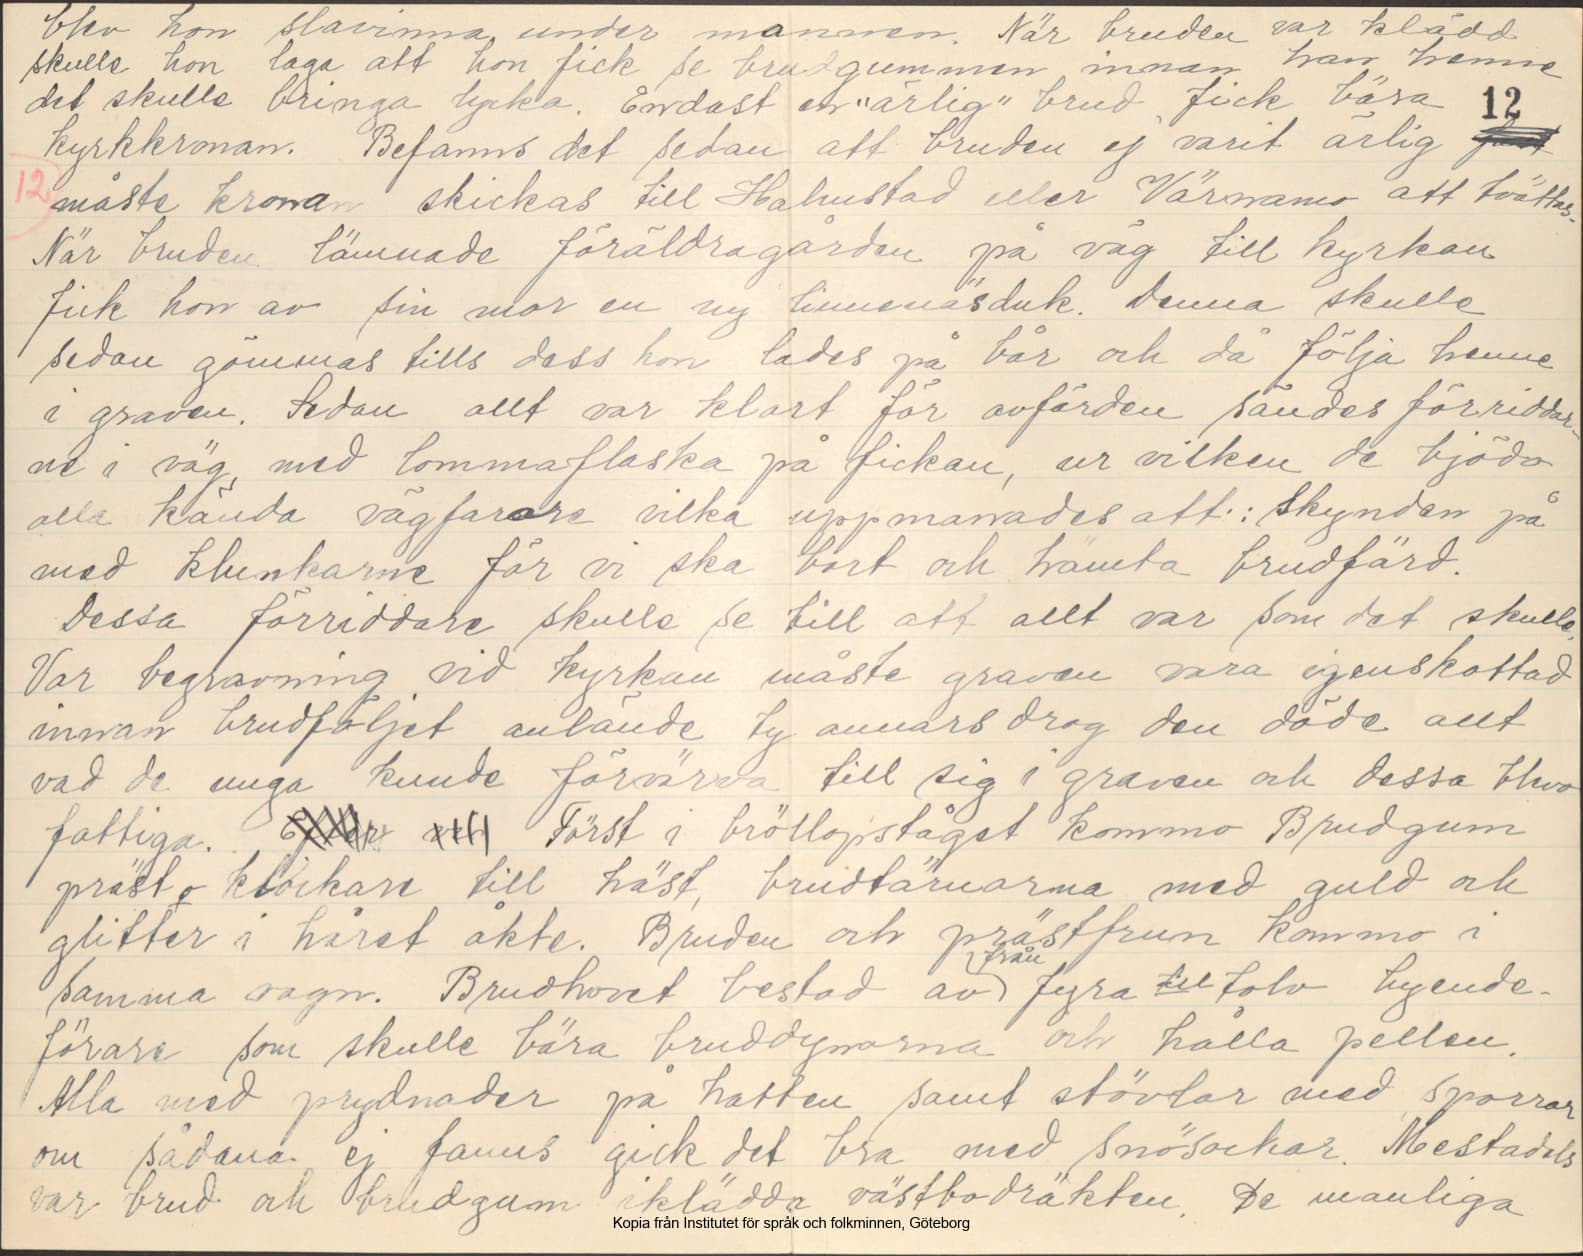 blev hon slavinna under mannen. När bruden var klädd
skulle hon laga att hon fick se brudgummen innan han henne
det skulle bringa lycka. Endast en "ärlig" brud fick bära
12
kyrkkronan. Befanns det sedan att bruden ej varit ärlig
12
måste kronan skickas till Halmstad eller Värnamo att tvättas.
När bruden lämnade föräldragården på väg till kyrkan
fick hon av sin mor en ny linnenäsduk. Denna skulle
sedan gömmas tills dess hon lades på bår och då följa henne
i graven. Sedan allt var klart för avfärden sändes förriddar-
ne i väg, med lommaflaska på fickan, ur vilken de bjödo
alla kända vägfarare vilka uppmanades att: Skynden på
med klunkarne för vi ska bort och hämta brudfärd.
Dessa förriddare skulle se till att allt var som det skulle.
Var begravning vid kyrkan måste graven vara igenskottad
innan brudföljet anlände ty annars drog den döde allt
vad de unga kunde förvärva till sig i graven och dessa blevo
fattiga. Först i bröllopståget kommo Brudgum
präst o klockare till häst, brudtärnorna med guld och
glitter i håret åkte. Bruden och prästfrun kommo i
samma vagn. Brudhovet bestod av från fyra till tolv hyende-
förare som skulle bära bruddynorna och hålla pellen.
Alla med prydnader på hatten samt stövlar med sporrar
om sådana ej fanns gick det bra med snösockar. Mestadels
var brud och brudgum iklädda västbodräkten. De manliga
Kopia från Institutet för språk och folkminnen, Göteborg